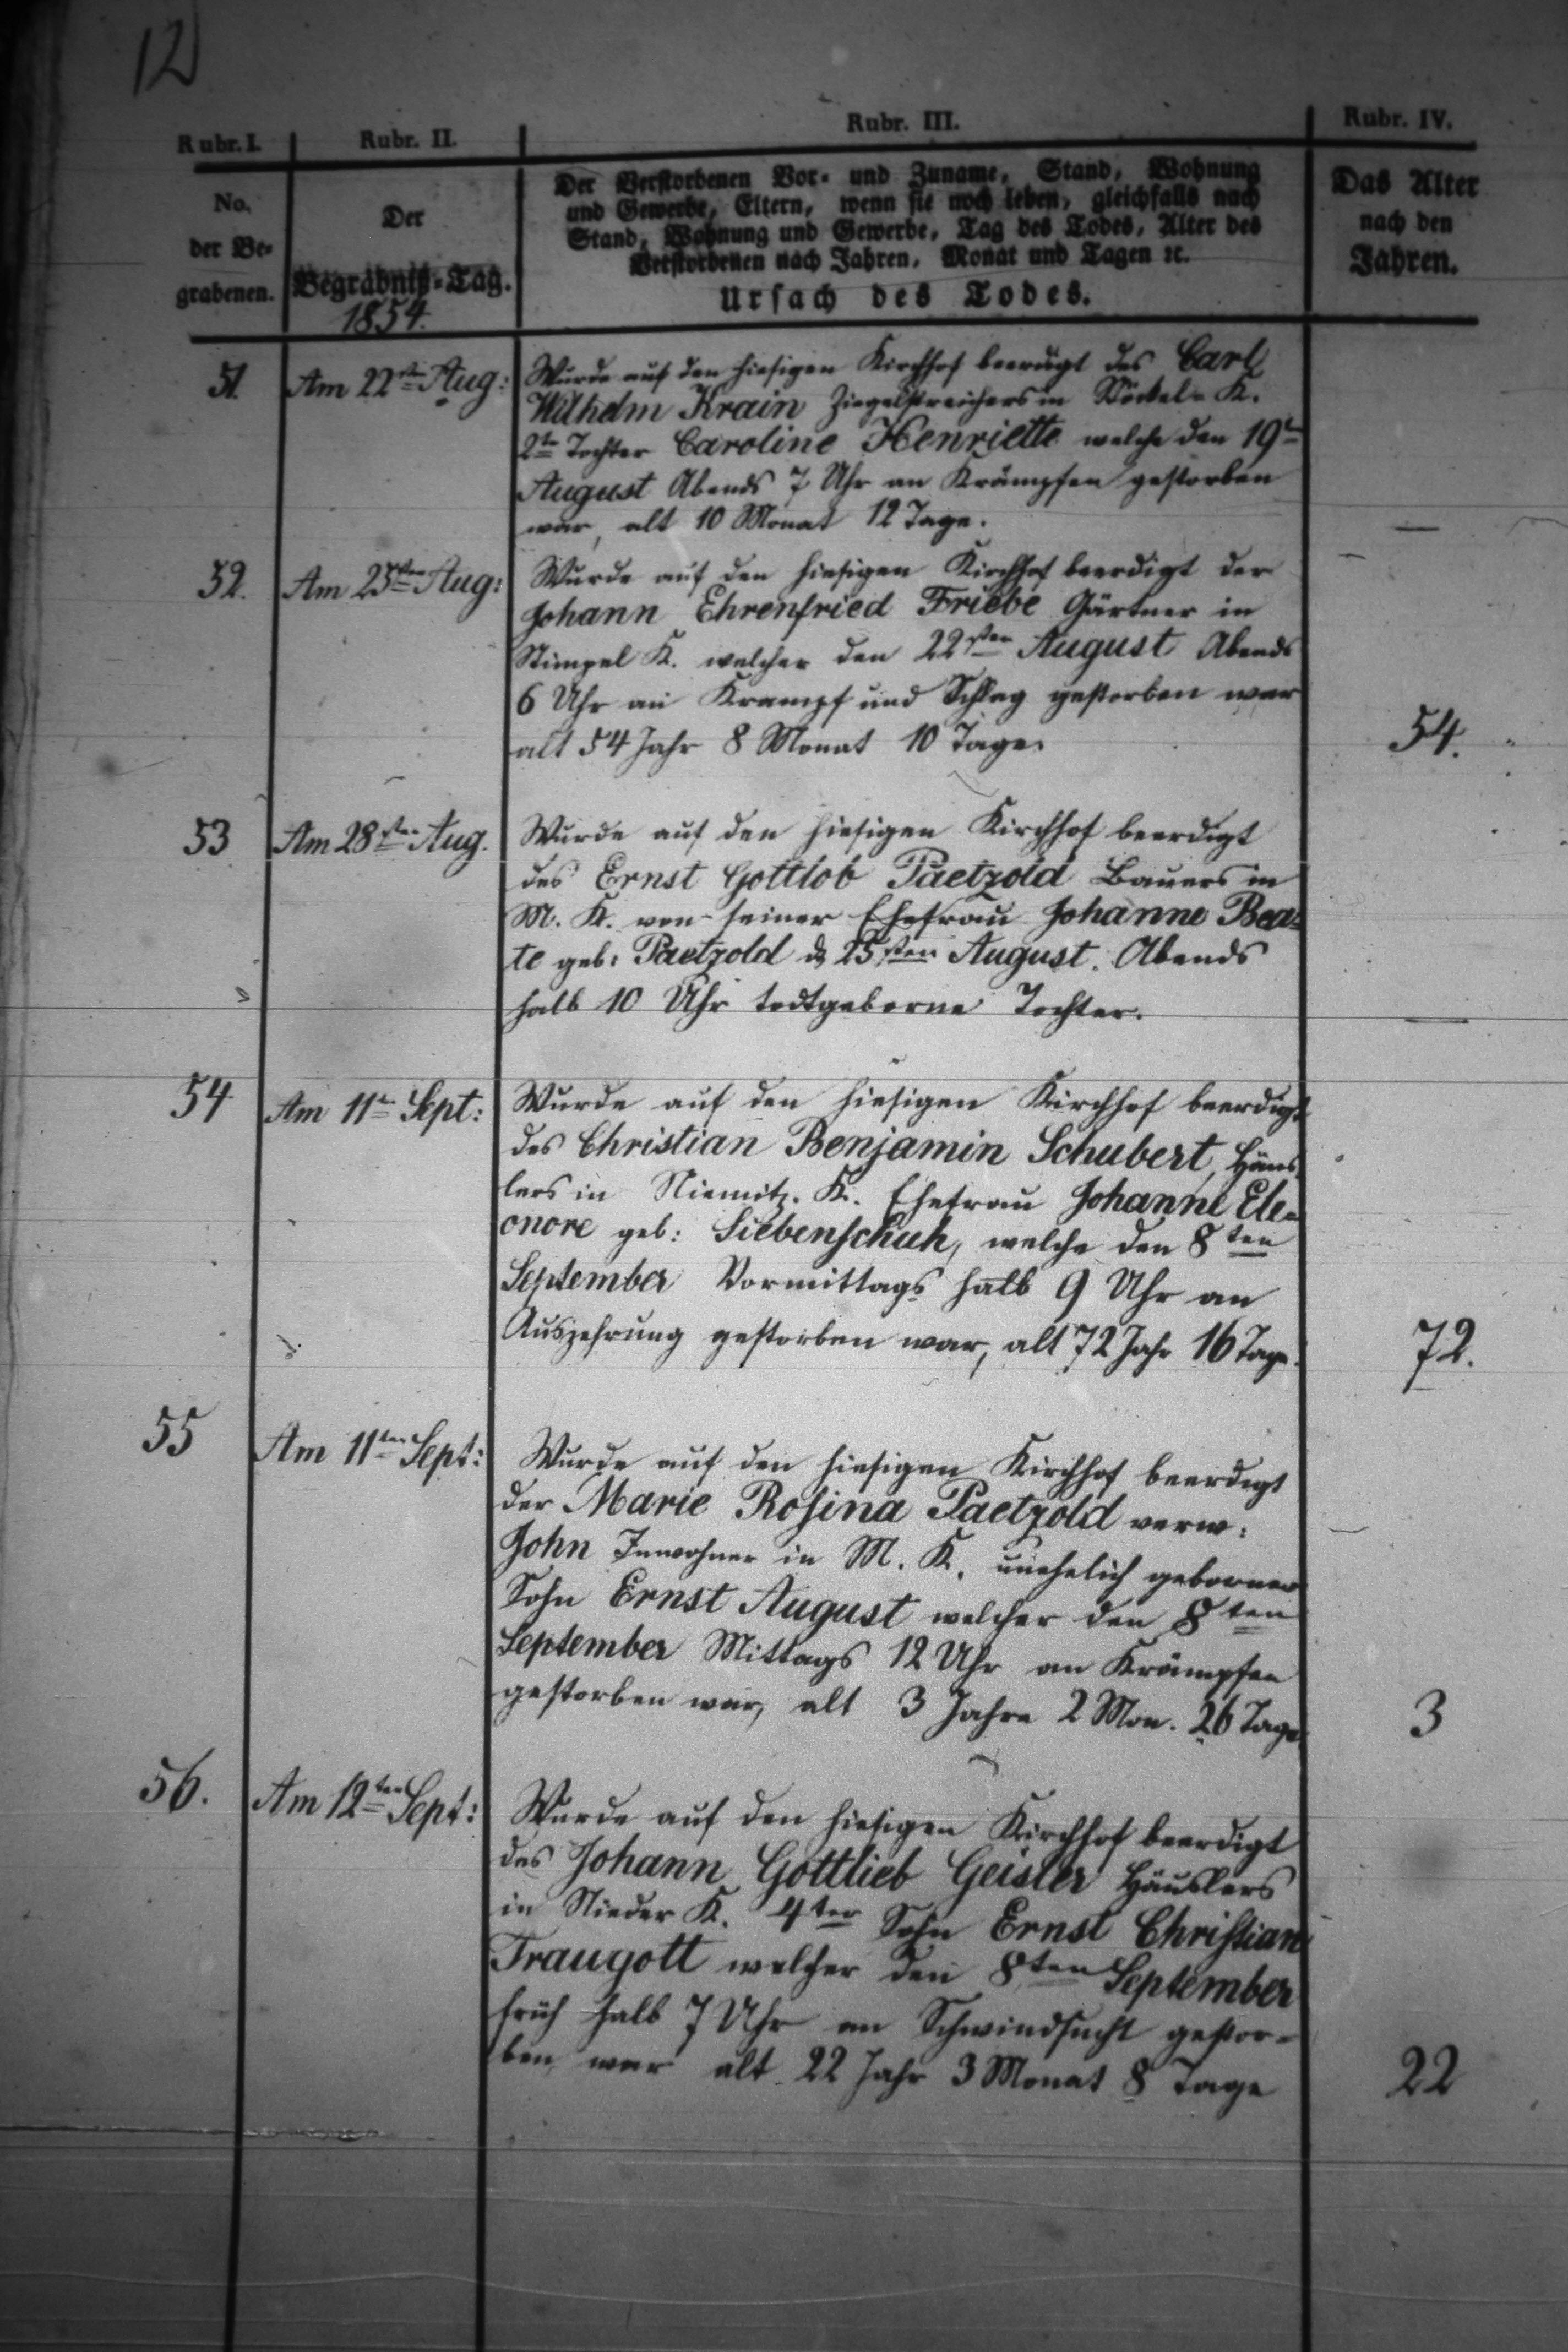 12
Rubr. I. Rubr. II. Rubr. III. Rubr. IV.
No. der Be- grabenen.
Der Begräbniß-Tag. 1854.
Der Verstorbenen Vor- und Zuname, Stand, Wohnung
und Gewerbe, Eltern, wenn sie noch leben, gleichfalls nach
Stand, Wohnung und Gewerbe, Tag des Todes, Alter des
Verstorbenen nach Jahren, Monat und Tagen ꝛc.
Ursach des Todes.
Das Alter
nach den
Jahren.
51. Am 22sten Aug: Wurde auf den hiesigen Kirchhof beerdigt des Carl
Wilhelm Krain Ziegelstreichers in Stöckel-K.
2te Tochter Caroline Henriette welche den 19ten
August Abends 7 Uhr an Krämpfen gestorben
war, alt 10 Monat 12 Tage. —
52. Am 25sten Aug: Wurde auf den hiesigen Kirchhof beerdigt der
Johann Ehrenfried Friebe Gärtner in
Stimpel K. welcher den 22sten August Abends
6 Uhr an Krampf und Schlag gestorben war
alt 54 Jahr 8 Monat 10 Tage. 54.
53 Am 28sten Aug. Wurde auf den hiesigen Kirchhof beerdigt
des Ernst Gottlob Paetzold Bauers in
M. K. von seiner Ehefrau Johanne Bea-
te geb: Paetzold d 25sten August. Abends
halb 10 Uhr todtgeborne Tochter. —
54 Am 11ten Sept: Wurde auf den hiesigen Kirchhof beerdigt
des Christian Benjamin Schubert, Häus
lers in Niemitz. K. Ehefrau Johanne Ele-
onore geb: Siebenschuh, welche den 8ten
September Vormittags halb 9 Uhr an
Auszehrung gestorben war, alt 72 Jahr 16 Tage. 72.
55 Am 11ten Sept: Wurde auf den hiesigen Kirchhof beerdigt
der Marie Rosina Paetzold verw:
John Inwohner in M. K. unehelich geborner
Sohn Ernst August welcher den 8ten
September Mittags 12 Uhr an Krämpfen
gestorben war, alt 3 Jahre 2 Mon. 26 Tage. 3
56. Am 12ten Sept: Wurde auf den hiesigen Kirchhof beerdigt
des Johann Gottlieb Geisler Häuslers
in Nieder K. 4ter Sohn Ernst Christian
Traugott welcher den 8ten September
früh halb 7 Uhr an Schwindsucht gestor-
ben war alt 22 Jahr 3 Monat 8 Tage 22